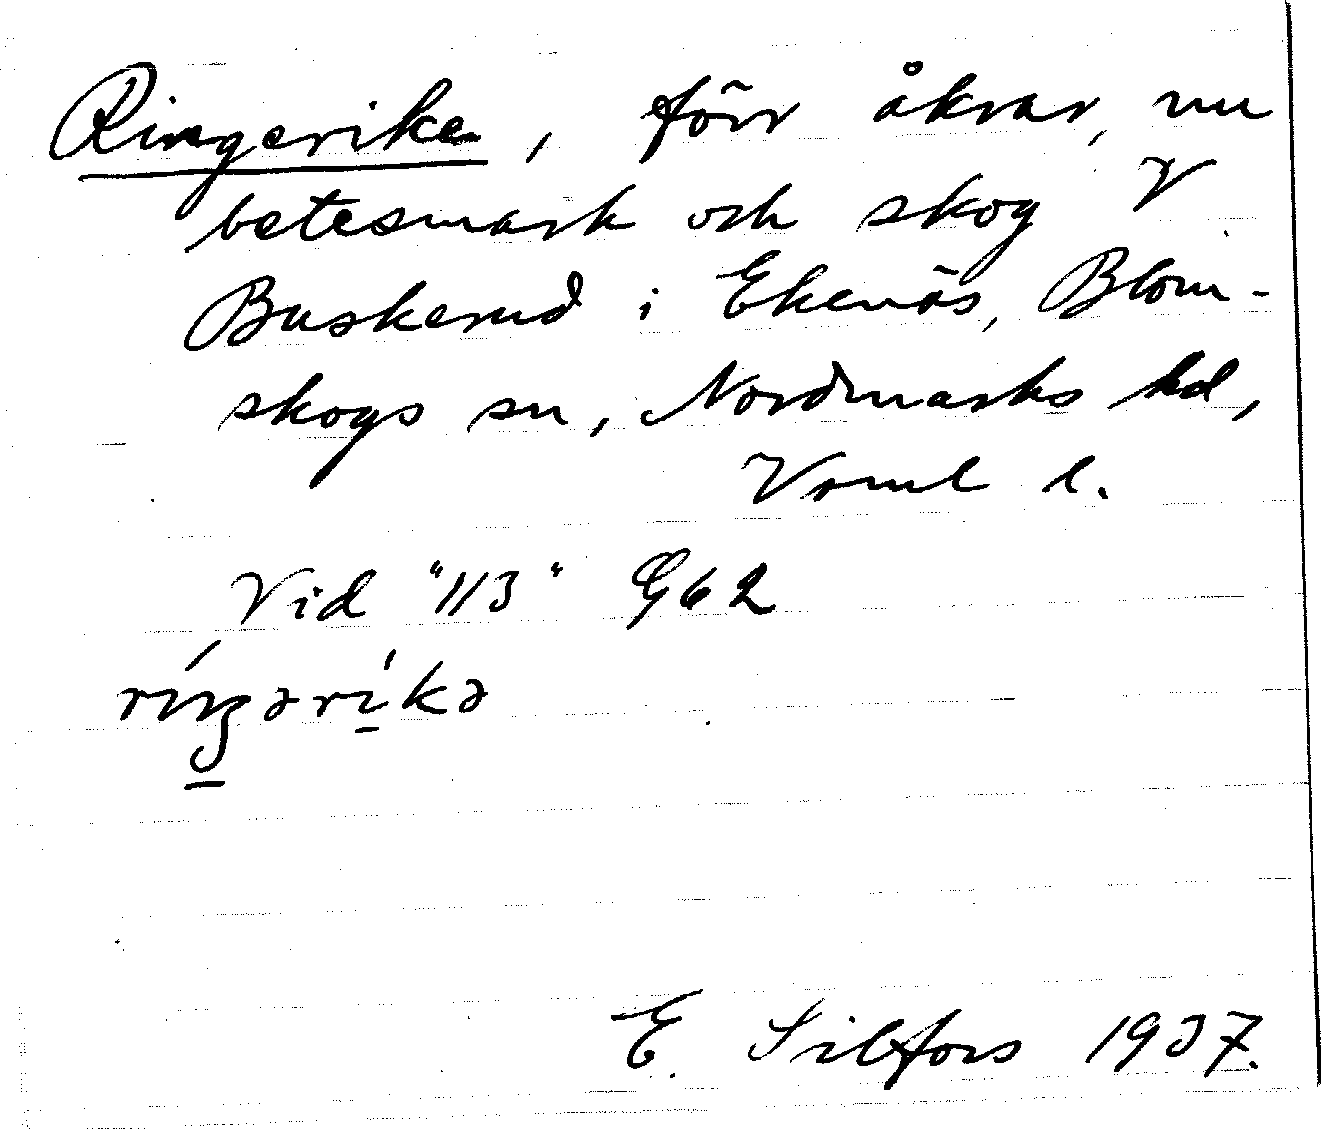 Ringerike, förr åkrar, nu
betesmark och skog V
Buskerud i Ekenäs, Blom-
skogs sn, Nordmarks hd,
Vrml l.
Vid "113" G62
ríŋərìkə
E. Silfors 1937.